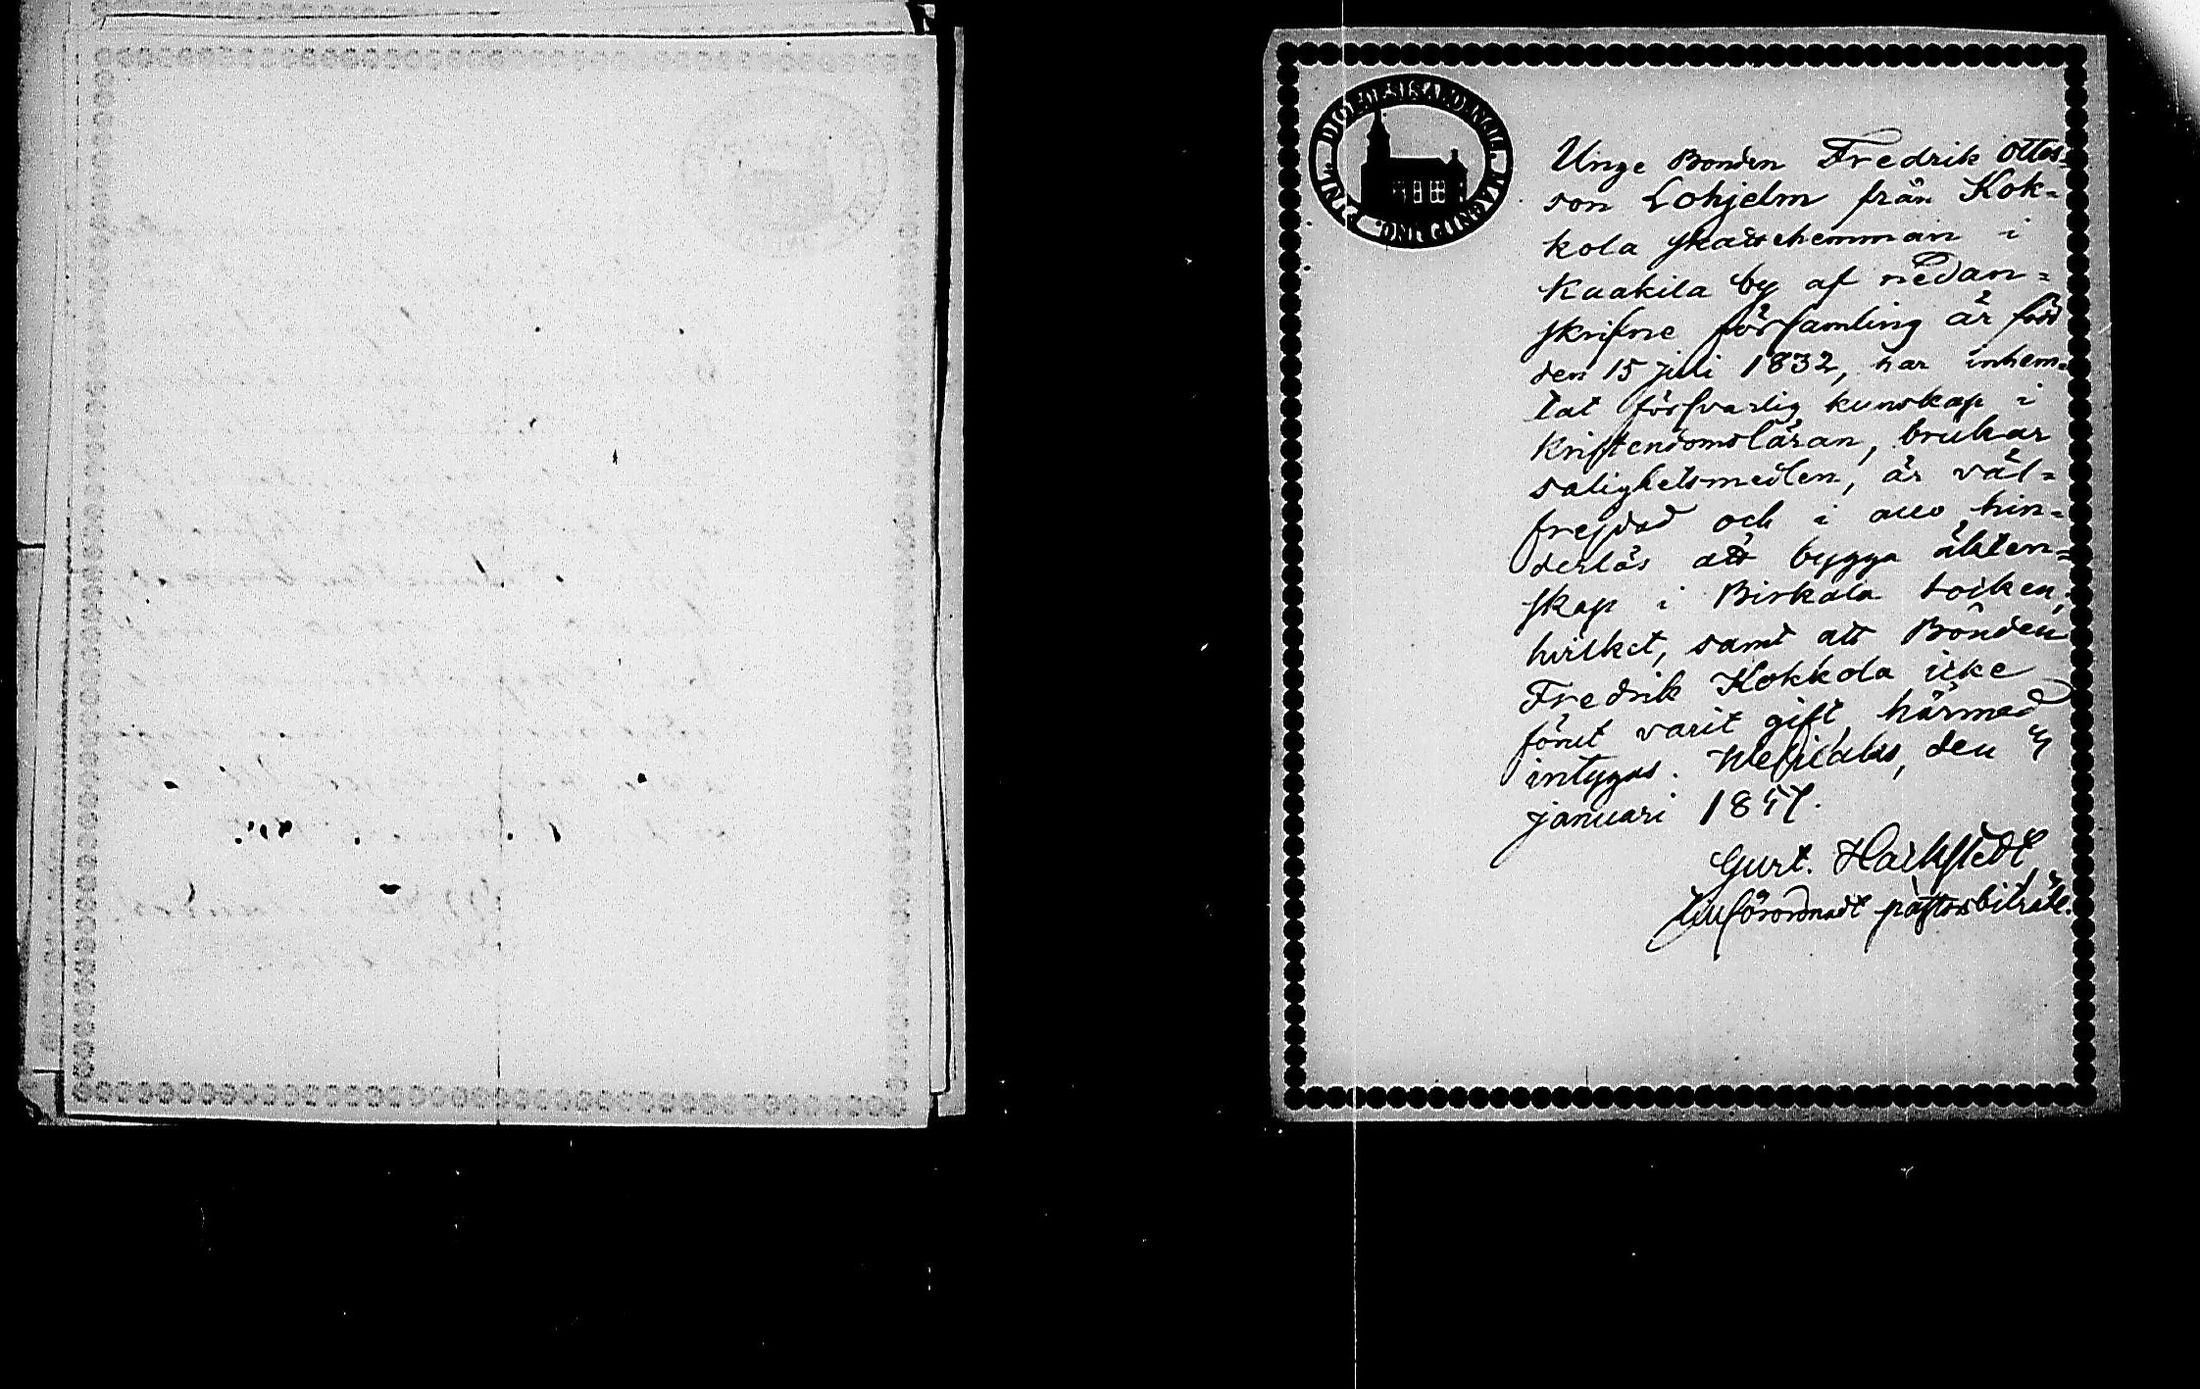 DIOECESIS ABOENSIS. MAGNI PRINC. FINL.
Unge Bonden Fredrik Ottos=
son Lohjelm från Kok=
kola skattehemman i
Kuakila by af nedan=
skrifne församling är född
den 15 juli 1832, har inhem=
tat försvarlig kunskap i
Kristendomsläran, brukar
salighetsmedlen, är väl=
frejdad och i allo hin=
derlös att bygga äkten=
skap i Birkala socken,
hvilket, samt att Bonden
Fredrik Kokkola icke
förut varit gift, härmed
intygas. Wesilaks, den 4
januari 1857.
Gust.
pastorsbiträde.